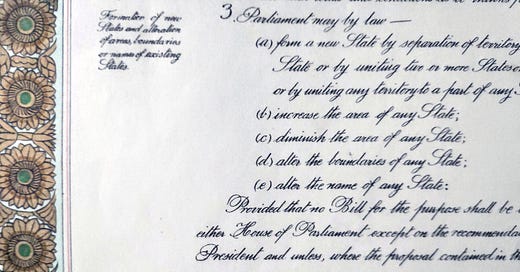 Formation of new
States and alteration
of areas, boundaries
or names of existing
States.
3. Parliament may by law —
(a) form a new State by separation of territory
State or by uniting two or more States o
or by uniting any territory to a part of any S
(b) increase the area of any State;
(c) diminish the area of any State;
(d) alter the boundaries of any State;
(e) alter the name of any State:
Provided that no Bill for the purpose shall be
either House of Parliament except on the recommenda
President and unless, where the proposal contained in th